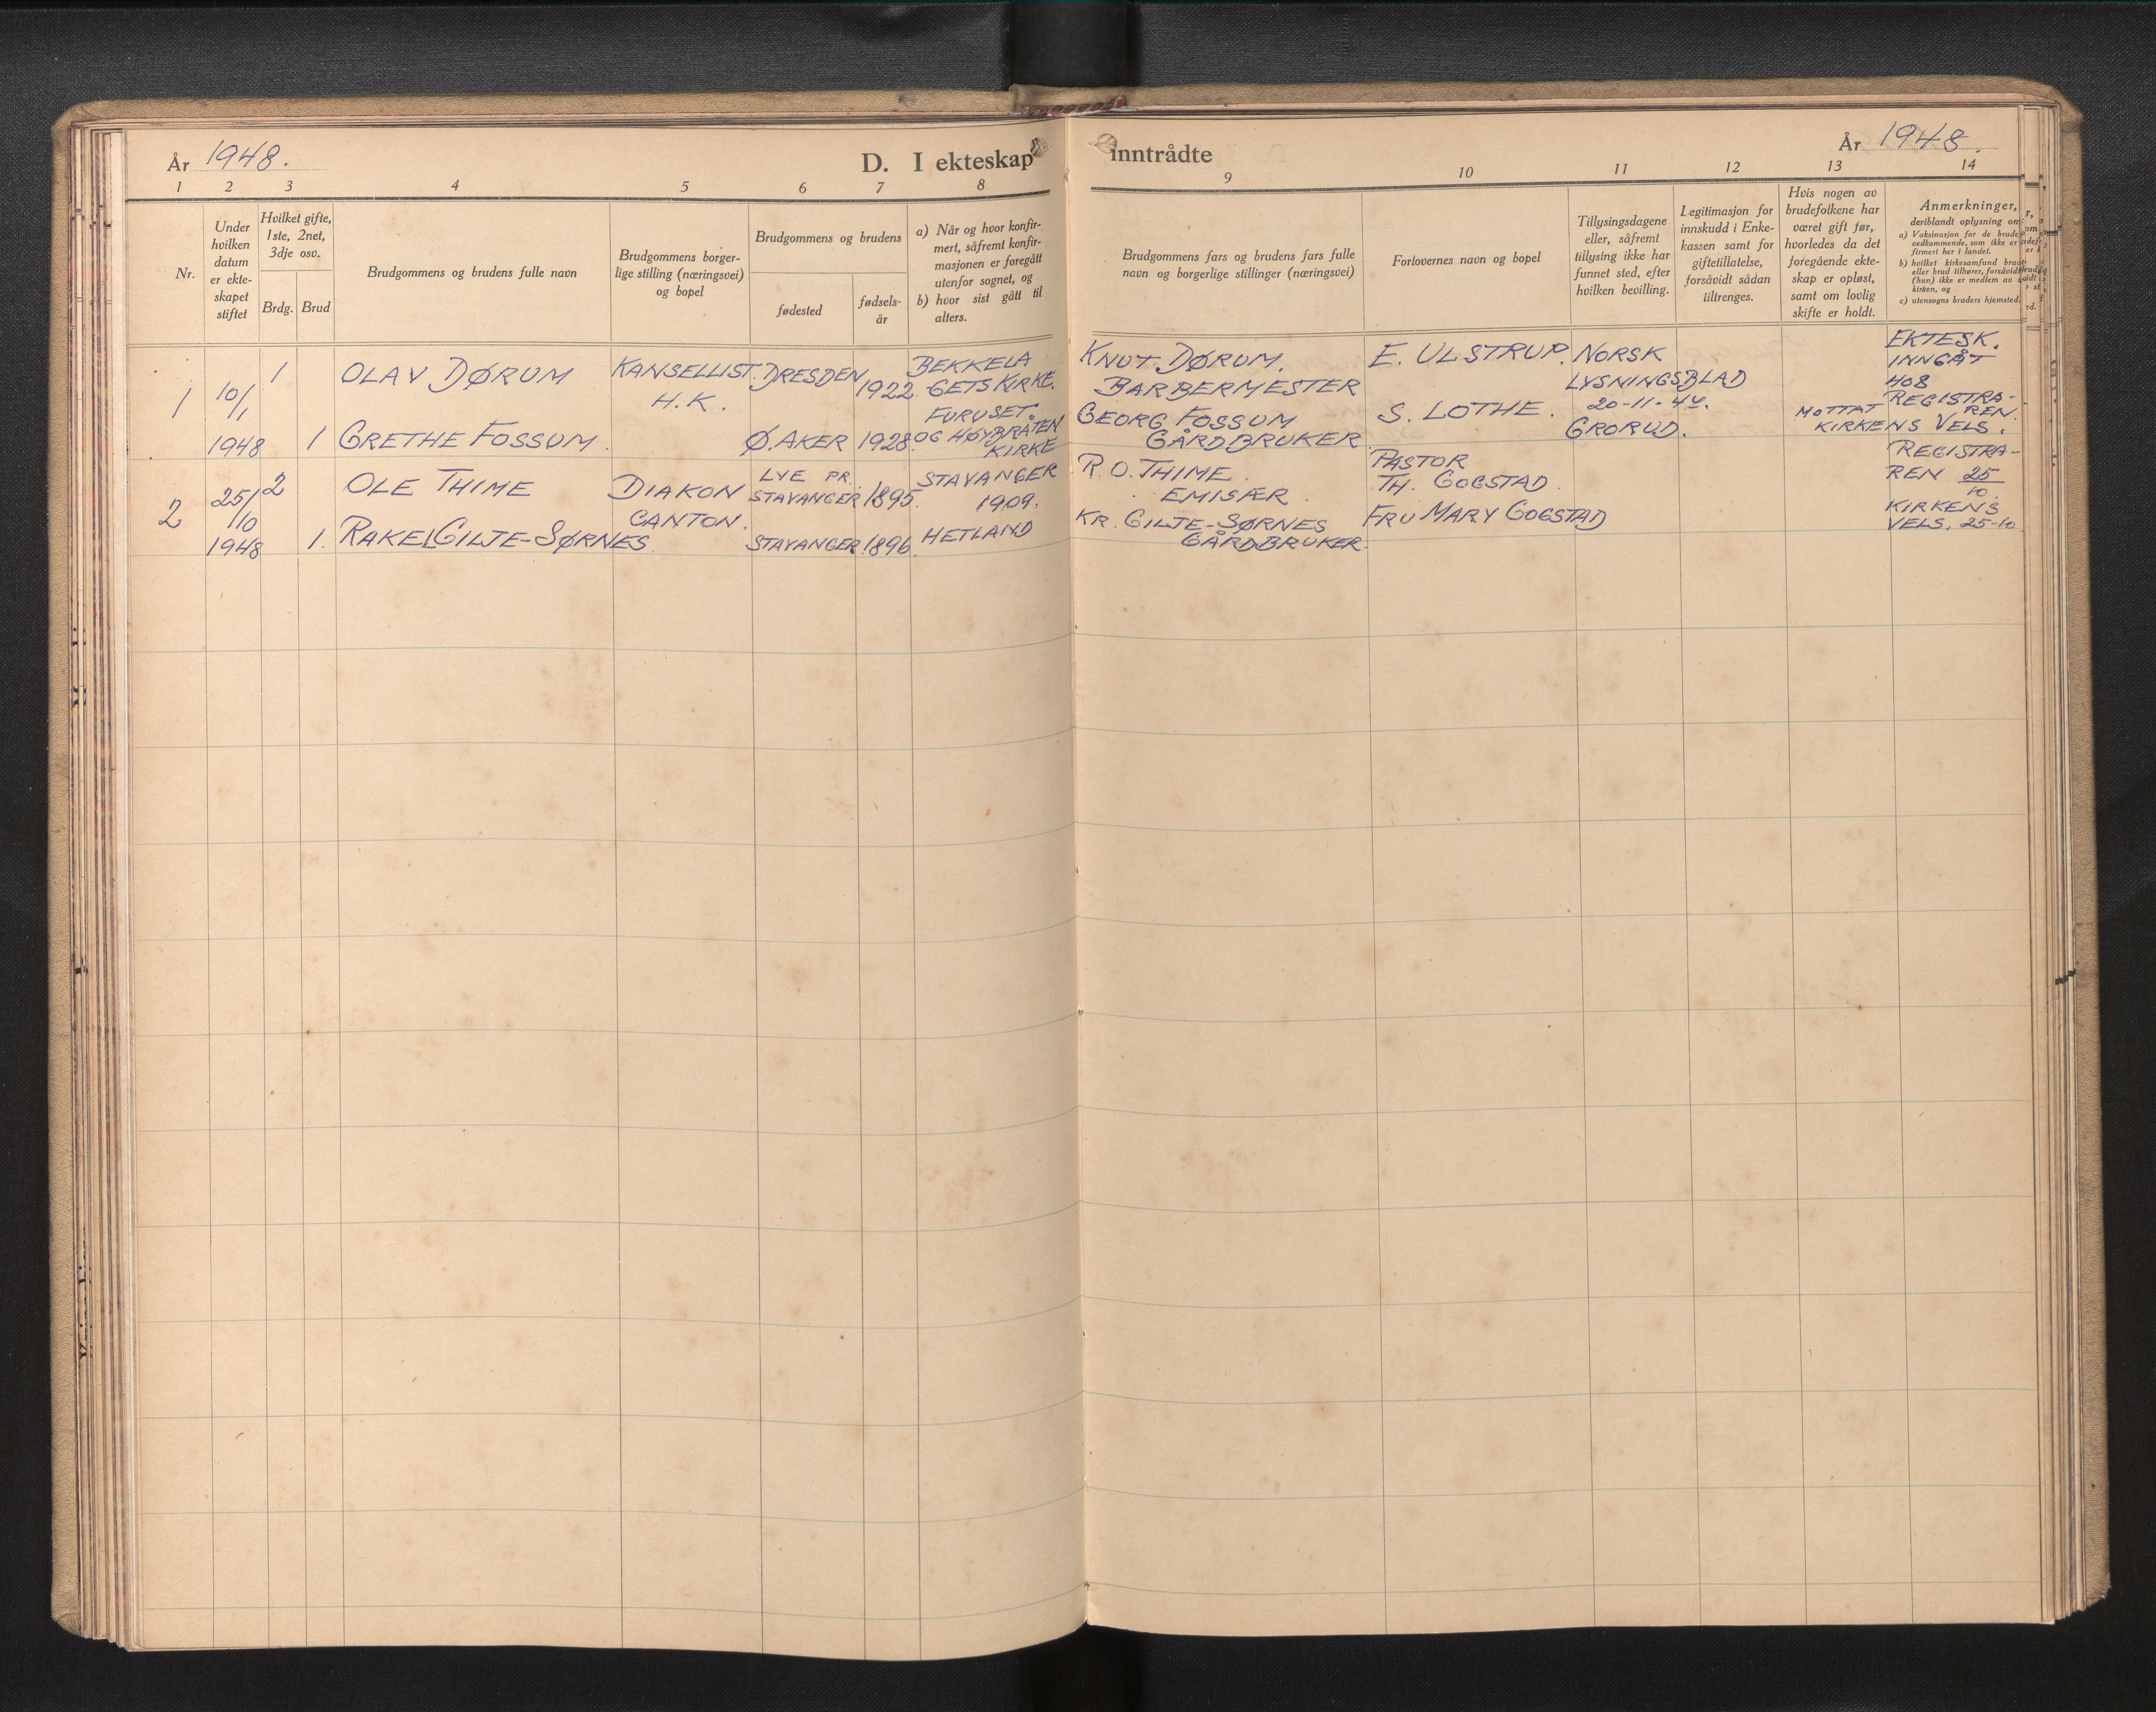 År 1948.
D. I ekteskap
1 2 3 4 5 6 7 8
Nr.
Under
hvilken
datum
er ekte-
skapet
stiftet
Hvilket gifte,
1ste, 2net,
3dje osv.
Brdg. Brud
Brudgommens og brudens fulle navn
Brudgommens borger-
lige stilling (næringsvei)
og bopel
Brudgommens og brudens
fødested
fødsels-
år
a) Når og hvor konfir-
mert, såfremt konfir-
masjonen er foregått
utenfor sognet, og
b) hvor sist gått til
alters.
1
10/1
1948
1
OLAV DØRUM
KANSELLIST.
H.K.
DRESDEN
1922
BEKKELA
GETS KIRKE.
1
GRETHE FOSSUM.
Ø. AKER
1928
FURUSET.
OG HØYBRÅTEN
KIRKE
2
25/10
1948
2
OLE THIME
DIAKON
CANTON.
LYE PR.
STAVANGER
1895.
STAVANGER
1909.
1.
RAKEL GILJE-SØRNES
STAVANGER
1896.
HETLAND
inntrådte
År 1948.
9 10 11 12 13 14
Brudgommens fars og brudens fars fulle
navn og borgerlige stillinger (næringsvei)
Forlovernes navn og bopel
Tillysingsdagene
eller, såfremt
tillysing ikke har
funnet sted, efter
hvilken bevilling.
Legitimasjon for
innskudd i Enke-
kassen samt for
giftetillatelse,
forsåvidt sådan
tiltrenges.
Hvis nogen av
brudefolkene har
været gift før,
hvorledes da det
foregående ekte-
skap er opløst,
samt om lovlig
skifte er holdt.
Anmerkninger,
deriblandt oplysning om:
a) Vaksinasjon for de brude
vedkommende, som ikke er
firmert her i landet.
b) hvilket kirkesamfund brud
eller brud tilhører, forsåvidt
(hun) ikke er medlem av
kirken, og
c) utensogns bruders hjemsted.
KNUT DØRUM.
BARBERMESTER
GEORG FOSSUM
GÅRDBRUKER
E. ULSTRUP.
S. LOTHE.
NORSK
LYSNINGSBLAD
GRORUD.
EKTESK.
INNGÅT
HOS
REGISTRA-
REN.
MOTTAT
KIRKENS VELS.
R.O. THIME.
EMISÆR.
KR. GILJE-SØRNES
GÅRDBRUKER.
PASTOR
TH. GOGSTAD.
FRU MARY GOGSTAD
REGISTRA-
REN 25/10.
KIRKENS
VELS. 25-10